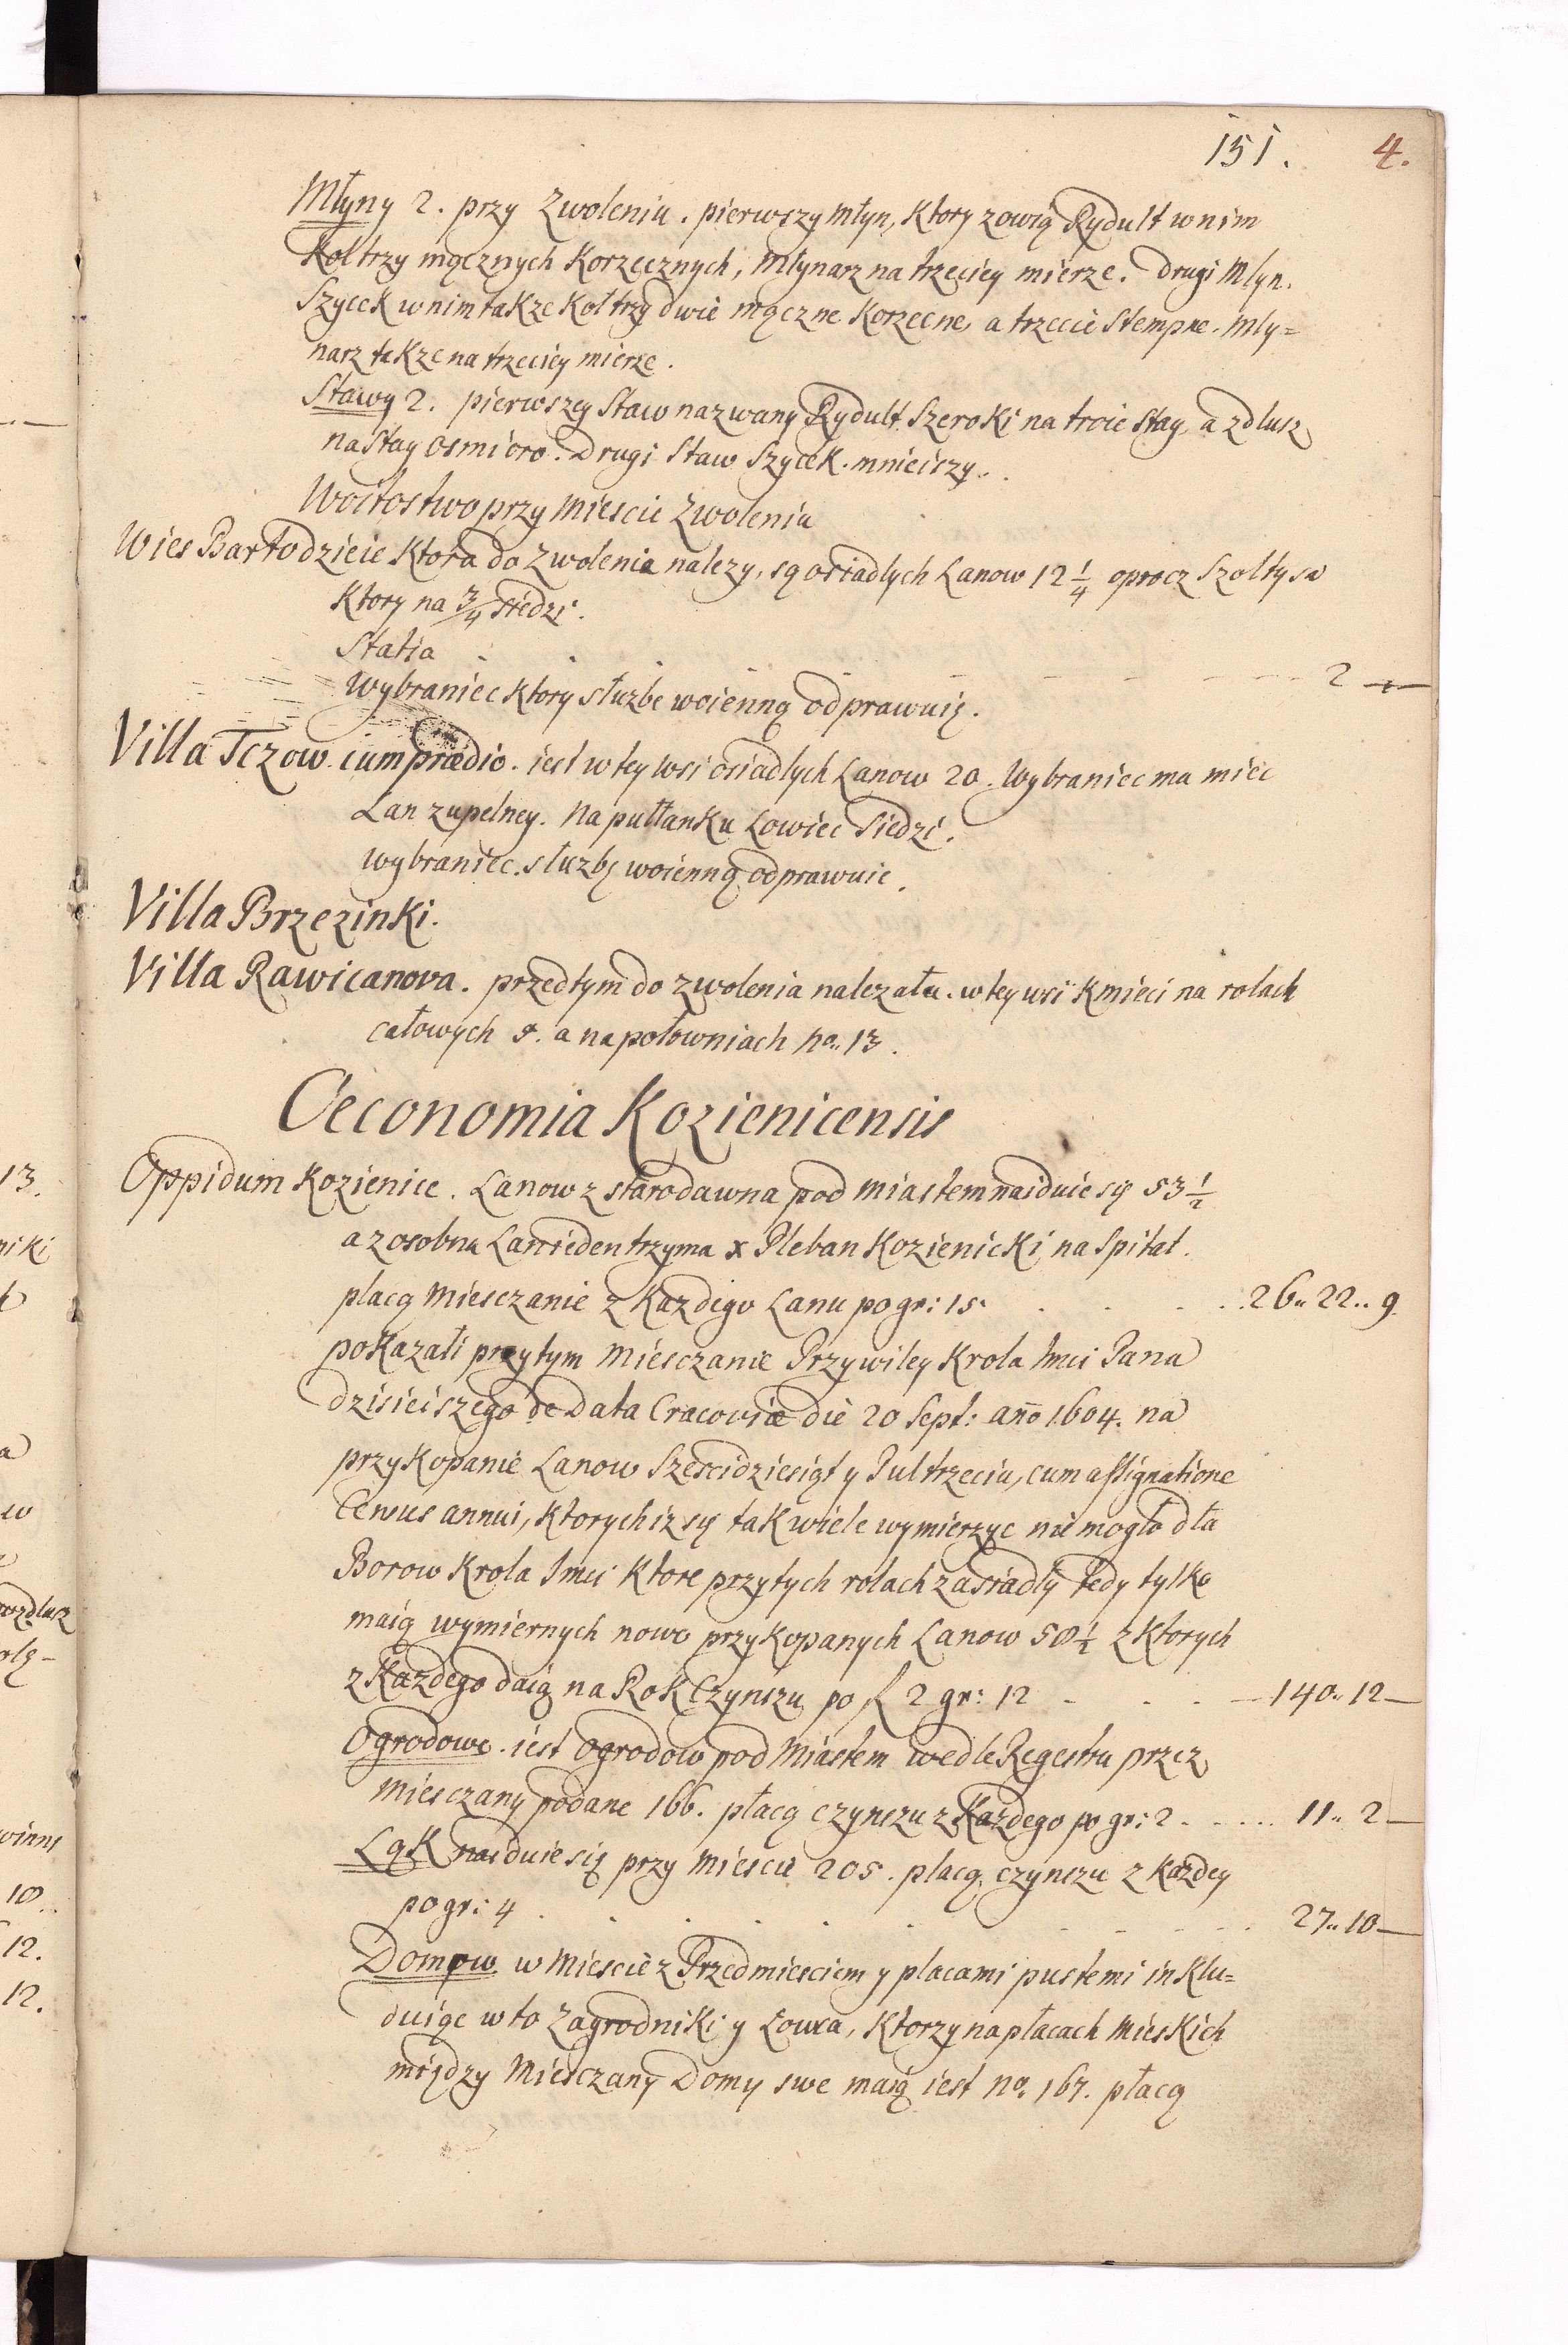 151. 4.
Młyny 2. przy Zwoleniu. pierwszy młyn, Ktory zowią Rydult w nim
Koł trzy mącznych Korzecznych, Młynarz na trzeciey mierze. Drugi Młyn.
Szycek w nim takze Koł trzy dwie mączne Korzecne, a trzecie Stempne. Mly=
narz takze na trzeciey mierze.
Stawy 2. pierwszey Staw nazwany Rydult Szeroki na troie Stay, a zdlusz
na Stay osmioro. Drugi Staw Szycek. mnieiszy.
Woitostwo przy Miescie Zwoleniu
Wies Bartodzieie Ktora do Zwolenia nalezy, są osiadlych Lanow 12 1/4 oprocz Szoltysa
Ktory na 3/4 siedzi.
Statia . . . . 2 —
Wybraniec Ktory sluzbe woienną odprawuię.
Villa Tczow. cum prædio. iest w tey wsi osiadlych Lanow 20. Wybraniec ma miec
Lan zupelney. Na pułłanku Lowiec Siedzi.
Wybraniec. sluzbę woienną odprawuie.
Villa Brzezinki.
Villa Rawicanova. przedtym do Zwolenia nalezała. w tey wsi Kmieci na rolach
całowych 9. a na połowniach no. 13.
Oeconomia Kozienicensis
Oppidum Kozienice. Lanow z starodawna pod miastem naiduie się 53 1/2
a z osobna Lan ieden trzyma x Pleban Kozienicki na Spital.
placą Miesczanie z Kazdego Lanu po gr: 15. . . . . 26.. 22.. 9.
poKazali przytym Miesczanie Przywiley Krola Jmci Pana
dzisieiszego de Data Cracoviæ die 20 Sept: año 1604. na
przyKopanie Lanow Szescidziesiąt y Pultrzecia, cum assignatione
Census annui, Ktorych iz się tak wiele wymierzyc nie mogło dla
Borow Krola Jmci Ktore przy tych rolach zasiadly tedy tylko
maią wymiernych nowo przyKopanych Lanow 58 1/2 z Ktorych
z Kazdego daią na RoK Czynszu po f 2 gr: 12 . . . — 140.. 12 —
Ogrodowe. iest Ogrodow pod Miastem wedle Regestru przez
Miesczany podane 166. płacą czynszu z Kazdego po gr: 2 . . . . . 11.. 2 —
LąK naiduie się przy Miescie 205. placą czynszu z Kazdey
po gr: 4 . . . . . . 27.. 10 —
Domow w Miescie z Przedmiesciem y placami pustemi inKlu=
duiąc w to Zagrodniki y Łowca, Ktorzy na płacach Mieskich
między Miesczany Domy swe maią iest no. 167. płacą